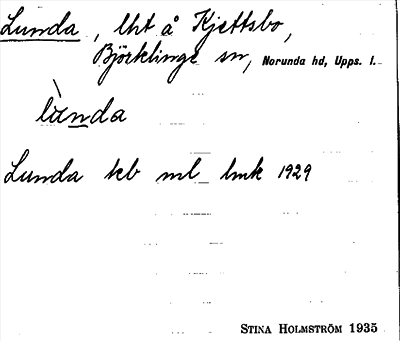 Lunda, lht å Kjettsbo,
Björklinge sn, Norunda hd, Upps. l.
lùnda
Lunda kb ml lmk 1929
STINA HOLMSTRÖM 1935